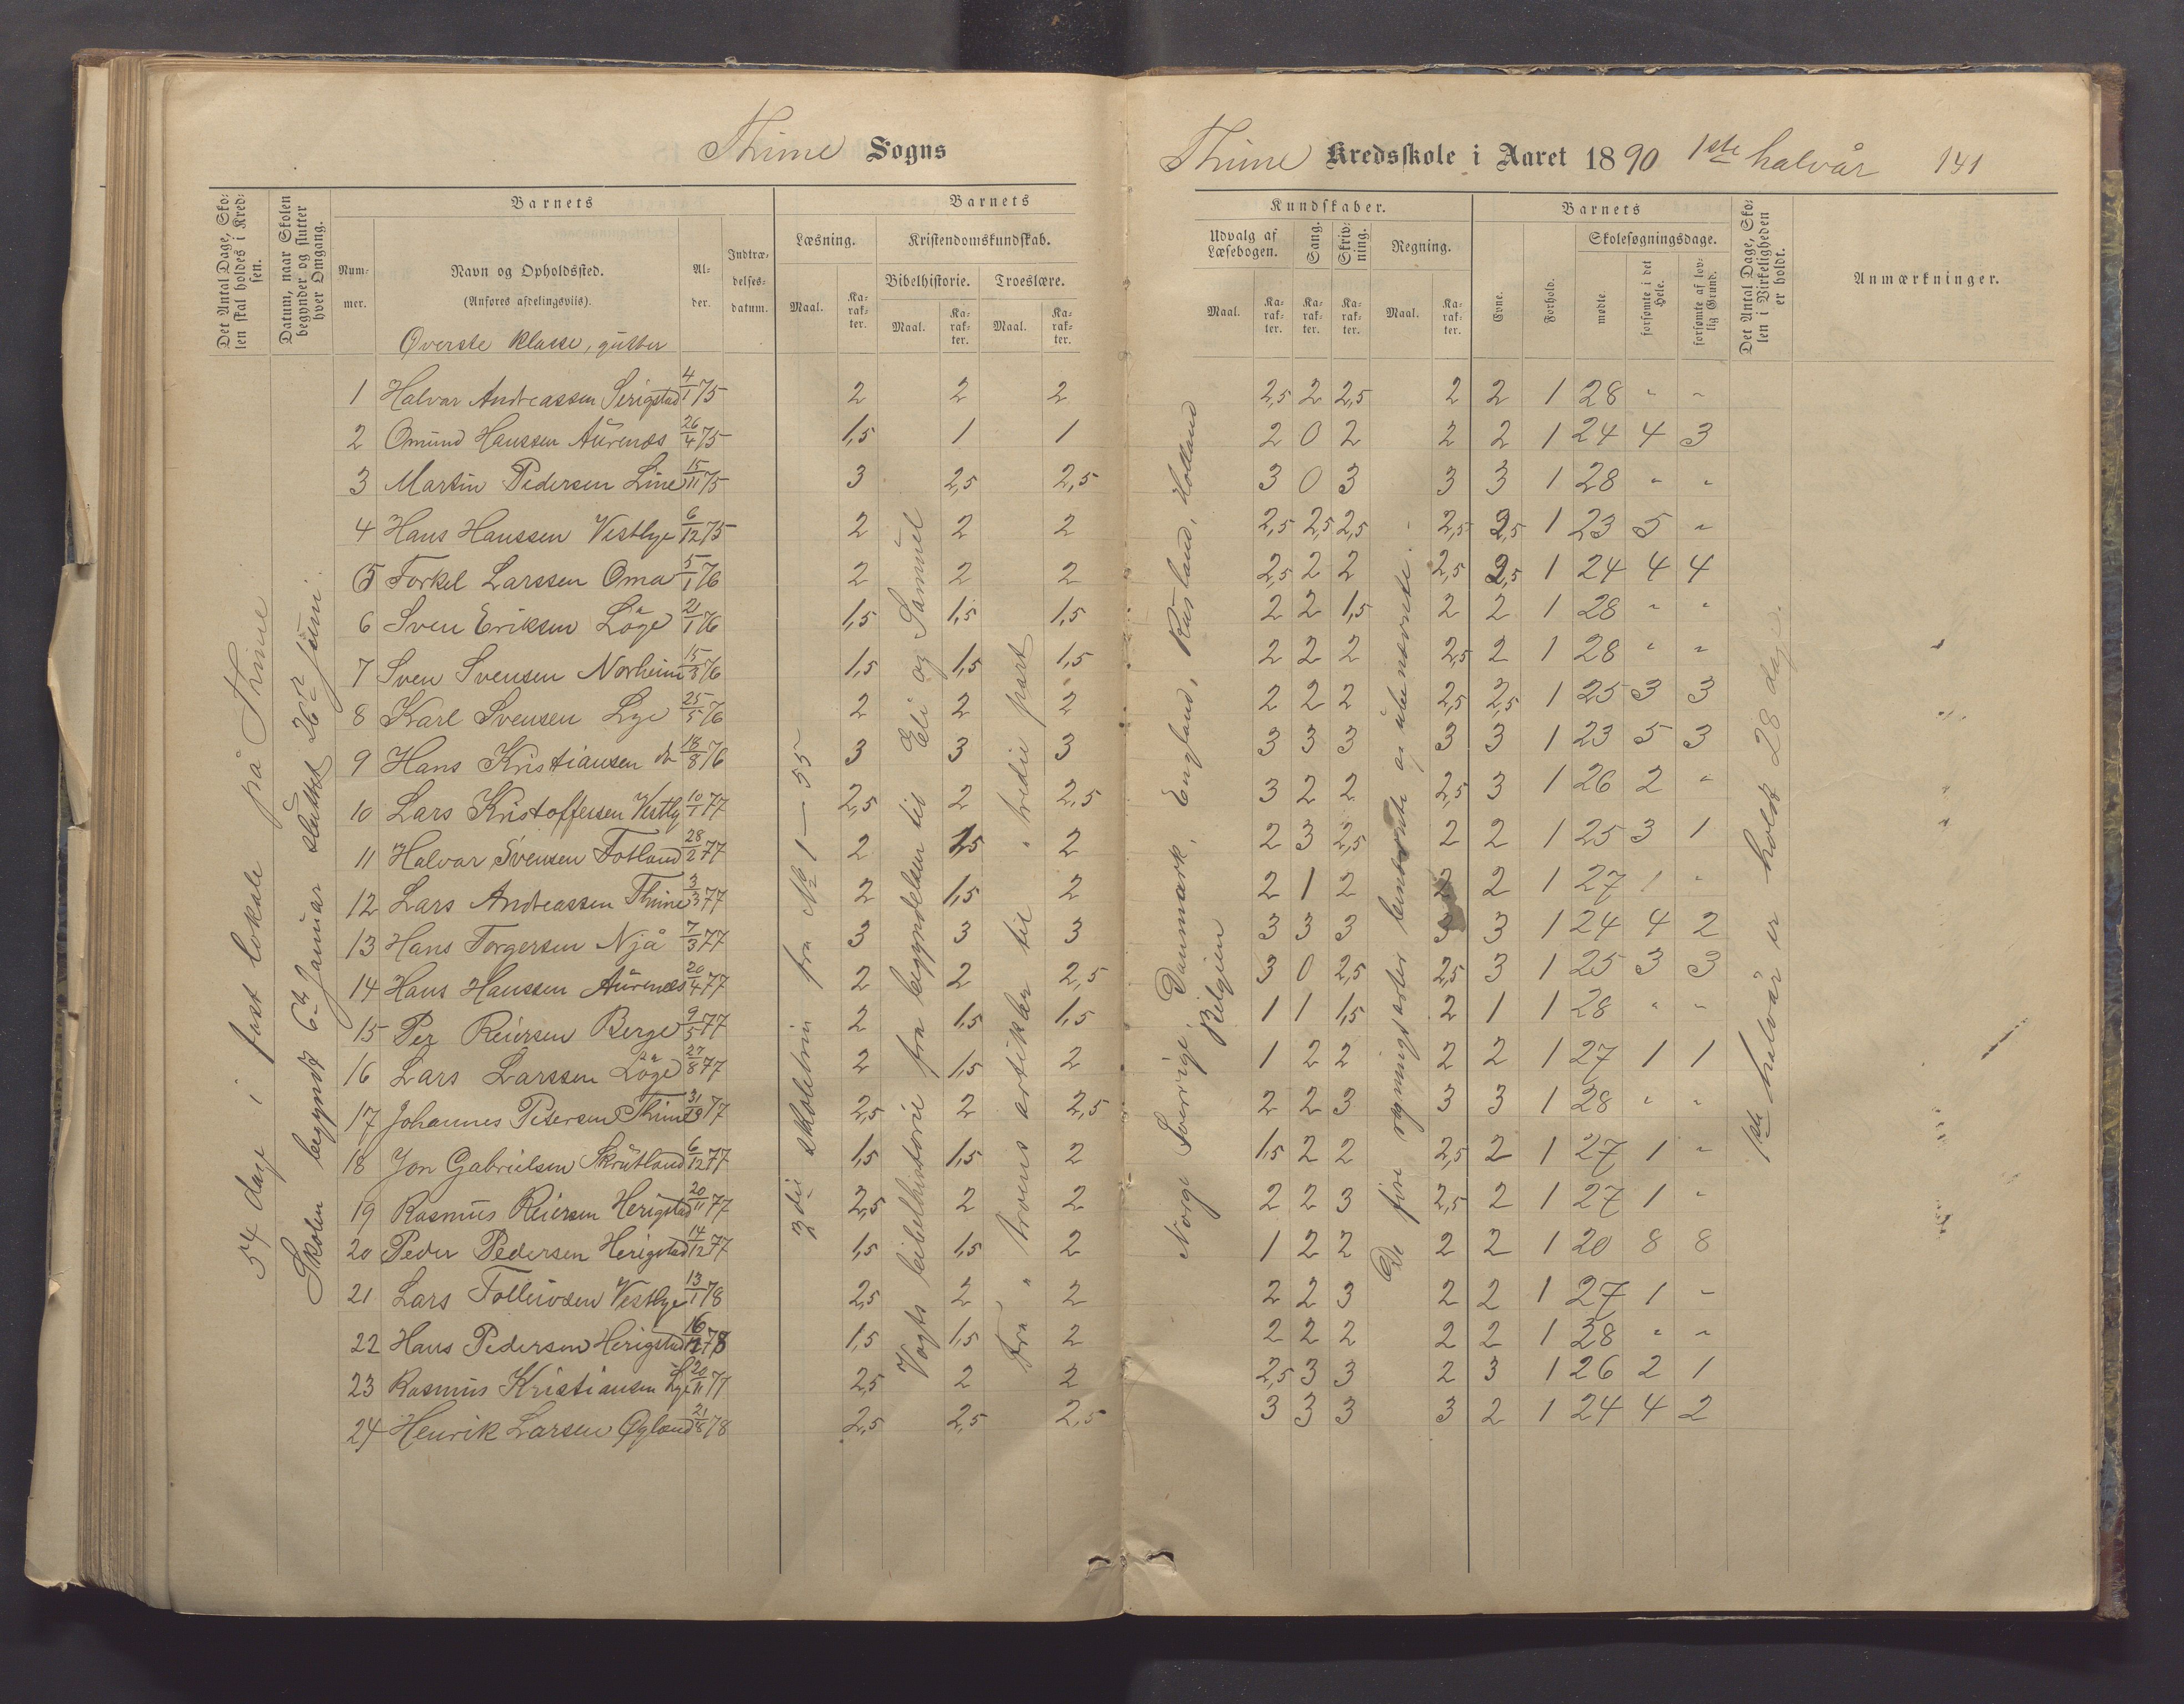 Thime Sogns
Thime Kredsskole i Aaret 1890 1ste halvår 141
Det Antal Dage, Skolen skal holdes i Kredsen.
Datum, naar Skolen begynder og slutter hver Omgang.
Barnets
Nummer.
Navn og Opholdssted.
(Anføres afdelingsviis).
Alder.
Indtrædelsesdatum.
Barnets
Læsning.
Kristendomskundskab.
Bibelhistorie. Troeslære.
Maal. Karakter. Maal. Karakter. Maal. Karakter.
Kundskaber.
Udvalg af Læsebogen. Sang. Skrivning. Regning.
Maal. Karakter. Karakter. Karakter. Maal. Karakter.
Barnets
Evne. Forhold.
Skolesøgningsdage.
mødte. forsømte i det Hele. forsømte af lovlig Grund.
Det Antal Dage, Skolen i Virkeligheden er holdt.
Anmærkninger.
Øverste klasse, gutter
54 dage i fast lokale på Thime.
Skolen begyndt 6te Januar sluttet 26de Juni.
3die skoletrin fra No 1 — 55
Vogts bibelhistorie fra begyndelsen til Eli og Samuel
Fra " troens artikler til " tredie part
Norge Sverrige, Danmark, England, Rusland, Holland
Belgien
De fire regningsarter benævnte og ubenævnte.
1ste halvår er holdt 28 dage.
1 Halvar Andreassen Serigstad 4/1 75 2 2 2 2,5 2 2,5 2 2 1 28 " "
2 Omund Hanssen Aurenes 26/4 75 1,5 1 1 2 0 2 2 2 1 24 4 3
3 Martin Pedersen Line 15/11 75 3 2,5 2,5 3 0 3 3 3 1 28 " "
4 Hans Hanssen Vestlye 6/12 75 2 2 2 2,5 2,5 2,5 2,5 2,5 1 23 5 "
5 Torkel Larssen Oma 5/1 76 2 2 2 2,5 2 2 2,5 2,5 1 24 4 4
6 Sven Eriksen Löge 21/1 76 1,5 1,5 1,5 2 2 1,5 2 2 1 28 " "
7 Sven Svensen Norheim 15/3 76 1,5 1,5 1,5 2 2 2 2,5 2 1 28 " "
8 Karl Svensen Lye 25/5 76 2 2 2 2 2 2 2,5 2,5 1 25 3 3
9 Hans Kristiansen do 18/8 76 3 3 3 3 3 3 3 3 1 23 5 3
10 Lars Kristoffersen Vestly 10/1 77 2,5 2 2,5 3 2 2 2,5 3 1 26 2 "
11 Halvar Svensen Fotland 28/2 77 2 1,5 2 2 3 2,5 2 2 1 25 3 1
12 Lars Andreassen Thime 3/3 77 2 1,5 2 2 1 2 2 2 1 27 1 "
13 Hans Torgersen Njå 7/3 77 3 3 3 3 3 3 3 3 1 24 4 2
14 Hans Hanssen Aurenes 20/4 77 2 2 2,5 3 0 2,5 2,5 3 1 25 3 3
15 Per Reiersen Berge 9/5 77 2 1,5 1,5 1 1 1,5 2 1 1 28 " "
16 Lars Larssen Löge 27/8 77 2 1,5 2 1 2 2 2 2 1 27 1 1
17 Johannes Petersen Thime 77 2,5 2 2,5 2 2 3 3 3 1 28 " "
18 Jon Gabrielsen Skrutland 6/12 77 1,5 1,5 2 1,5 2 2 2,5 2 1 27 1 "
19 Rasmus Reiersen Herigstad 20/11 77 2,5 2 2 2 2 3 2,5 2 1 27 1 "
20 Peder Pedersen Herigstad 14/12 77 1,5 1,5 2 1 2 2 2 2 1 20 8 8
21 Lars Tolleivsen Vestlye 13/1 78 2,5 2 2 2 2 3 2 2 1 27 1 "
22 Hans Pedersen Herigstad 78 1,5 1,5 2 2 2 2 2 2 1 28 " "
23 Rasmus Kristiansen Lye 20/11 77 2,5 2 2 2,5 3 3 2 3 1 26 2 1
24 Henrik Larsen Öyland 21/8 78 2,5 2,5 2,5 3 3 3 3 2 1 24 4 2